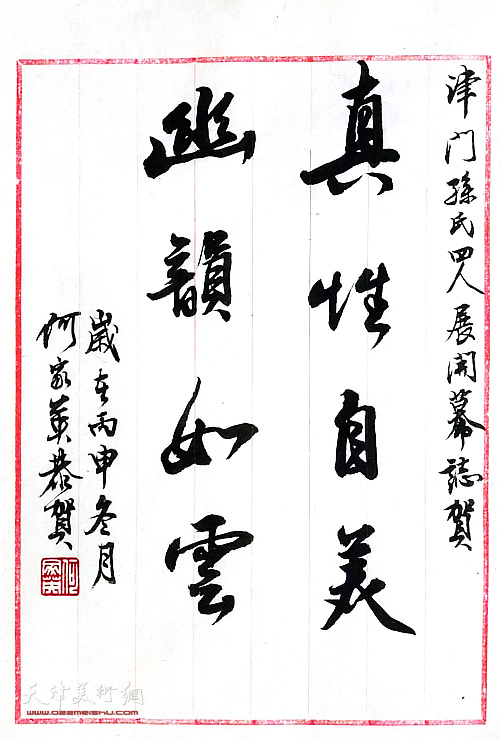 津门孫氏四人展開幕誌賀
真性自美
幽韻如雲
歲在丙申冬月
何家英恭賀
何家英
天津美術網
www.022meishu.com